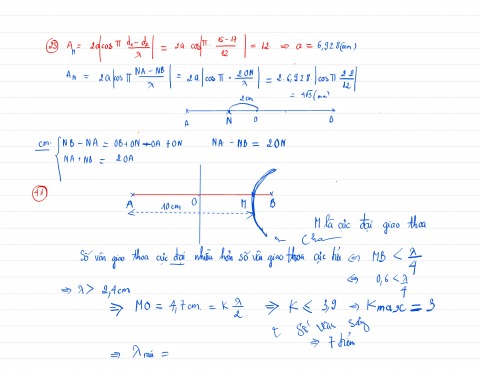 (29) A_n = 2a|cos π (d₁-d₂)/λ| = 2a |cos π (15-17)/12| = 12 ⇒ a = 6,928 (cm)
A_N = 2a|cos π (NA-NB)/λ| = 2a|cos π · 2ON/λ| = 2.6,928 |cos π 2.2/12|
2cm
A N O B
NB - NA = OB+ON-OA+ON NA - NB = 2ON
NA + NB = 2OA
A O M B
10cm
M là cực đại giao thoa
Số vân giao thoa cực đại nhiều hơn số vân giao thoa cực tiểu ⇔ MB < λ/4
⇔ 0,6 < λ/4
⇒ λ > 2,4cm
⇒ MO = 4,7cm = k λ/2 ⇒ K ≤ 3,9 ⇒ Kmax = 3
⇒ 7 điểm
⇒ λ =